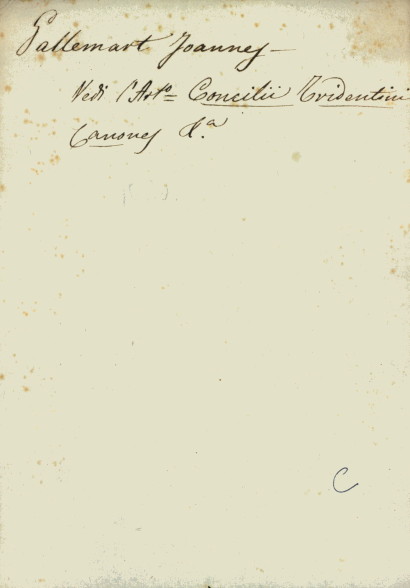 Gallemart Joannes –
Vedi l'Arto= Concilii Tridentini
Canones &.a
C